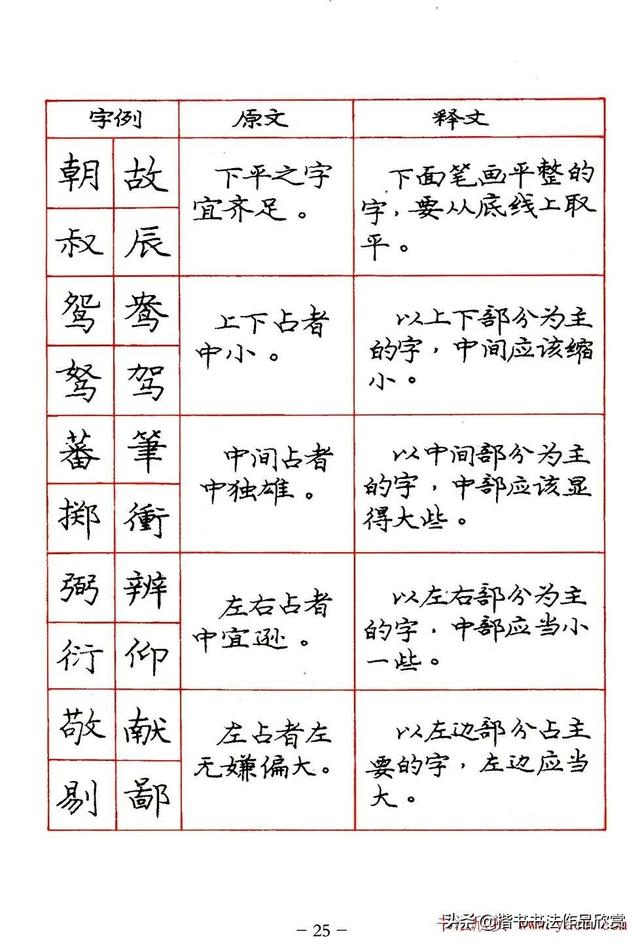 字例 原文 释文
朝 故
叔 辰
下平之字
宜齐足。
下面笔画平整的
字，要从底线上取
平。
鸳 鸯
驽 驾
上下占者
中小。
以上下部分为主
的字，中间应该缩
小。
蕃 筆
掷 衝
中间占者
中独雄。
以中间部分为主
的字，中部应该显
得大些。
弼 辨
衍 仰
左右占者
中宜逊。
以左右部分为主
的字，中部应当小
一些。
敬 献
剔 鄙
左占者左
无嫌偏大。
以左边部分占主
要的字，左边应当
大。
- 25 -
头条@楷书书法作品欣赏